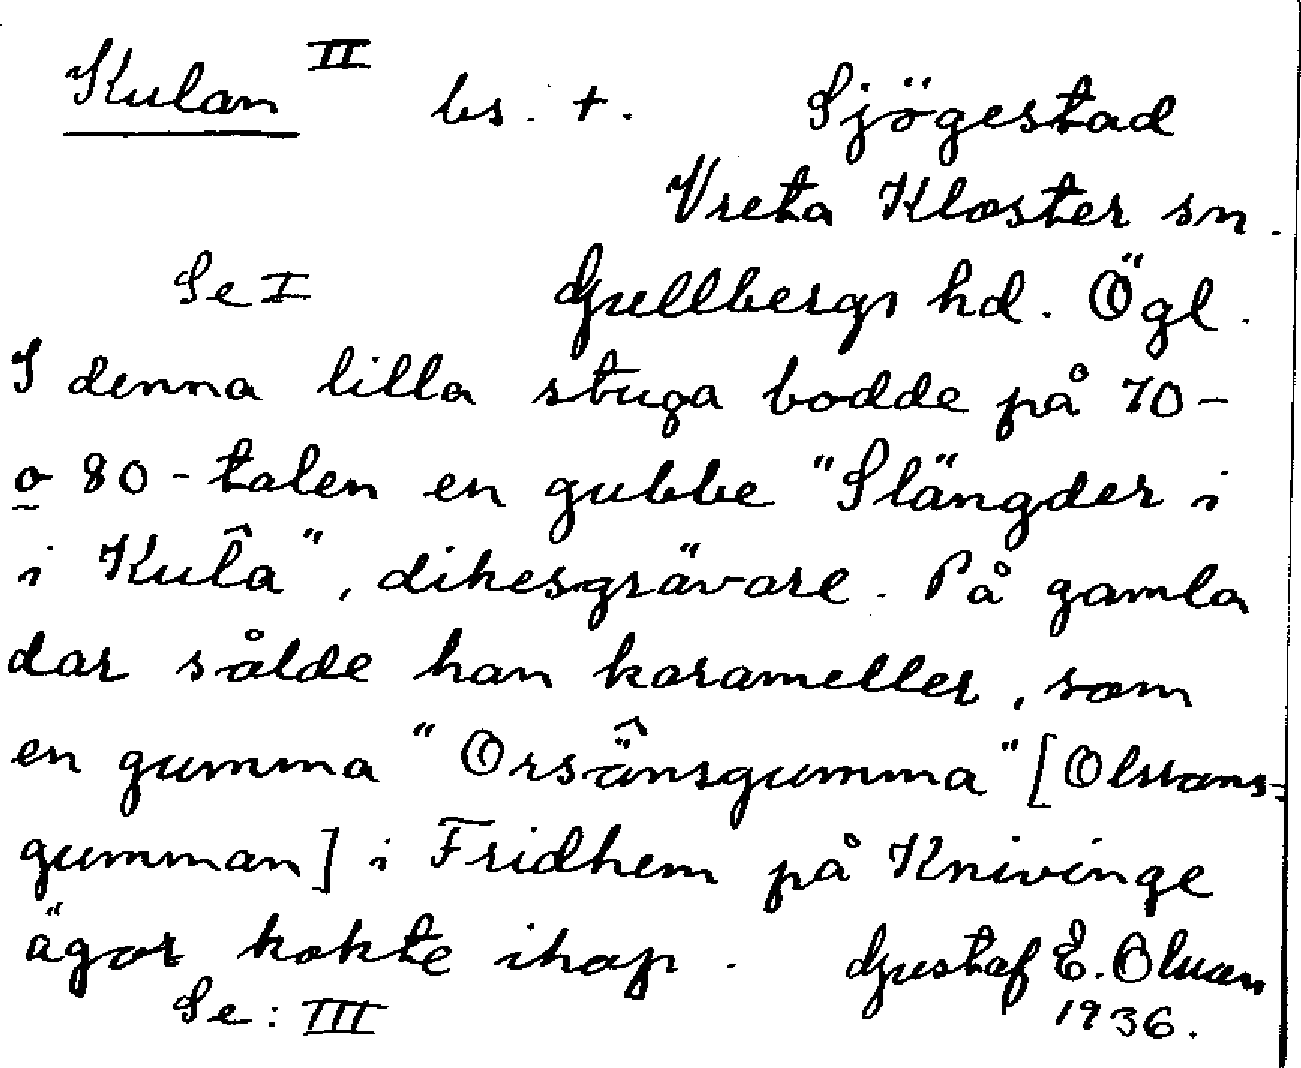 Kulan II bs. +. Sjögestad
Vreta Kloster sn.
Se I Gullbergs hd. Ögl.
I denna lilla stuga bodde på 70-
o 80-talen en gubbe "Slängder i
i Kulâ", dikesgrävare. På gamla
dar sålde han karameller, som
en gumma "Orsä̂nsgumma" [Olssons-
gumman] i Fridhem på Knivinge
ägor kokte ihop. Gustaf E. Olsson
Se: III 1936.